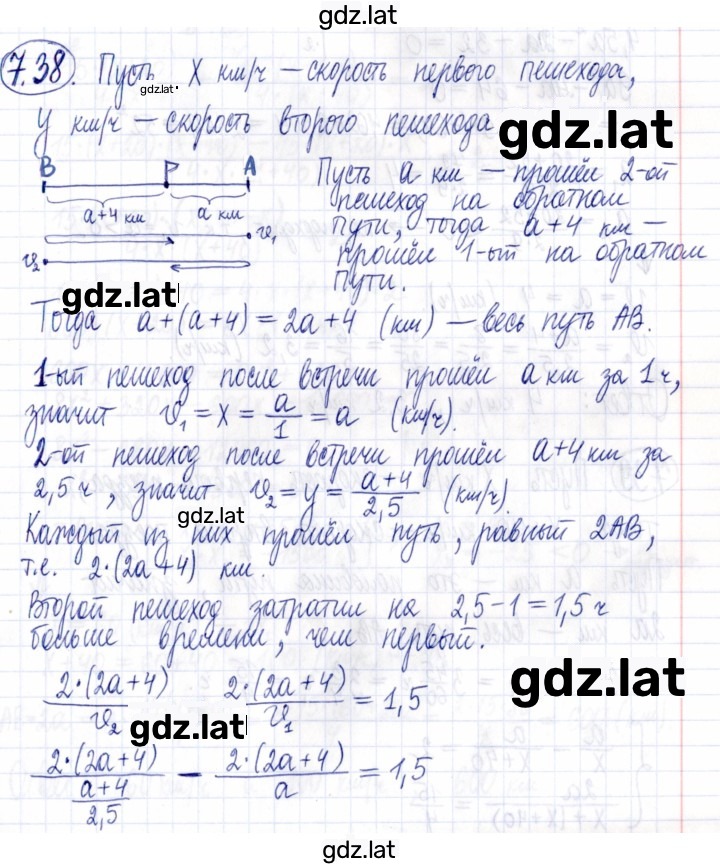 gdz.lat
7.38. Пусть x км/ч — скорость первого пешехода,
gdz.lat
y км/ч — скорость второго пешехода
gdz.lat
B P A
a+4 км a км
v₁
v₂
Пусть a км — прошёл 2-ой
пешеход на обратном
пути, тогда a+4 км —
прошёл 1-ый на обратном
пути.
gdz.lat
Тогда a+(a+4) = 2a+4 (км) — весь путь AB.
1-ый пешеход после встречи прошёл a км за 1 ч,
значит v₁ = x = a/1 = a (км/ч).
2-ой пешеход после встречи прошёл a+4 км за
2,5 ч, значит v₂ = y = (a+4)/2,5 (км/ч).
gdz.lat
Каждый из них прошёл путь, равный 2AB,
т.е. 2·(2a+4) км.
Второй пешеход затратил на 2,5-1=1,5 ч
больше времени, чем первый.
gdz.lat
2·(2a+4)/v₂ 2·(2a+4)/v₁ = 1,5
gdz.lat
2·(2a+4)/((a+4)/2,5) − 2·(2a+4)/a = 1,5
gdz.lat